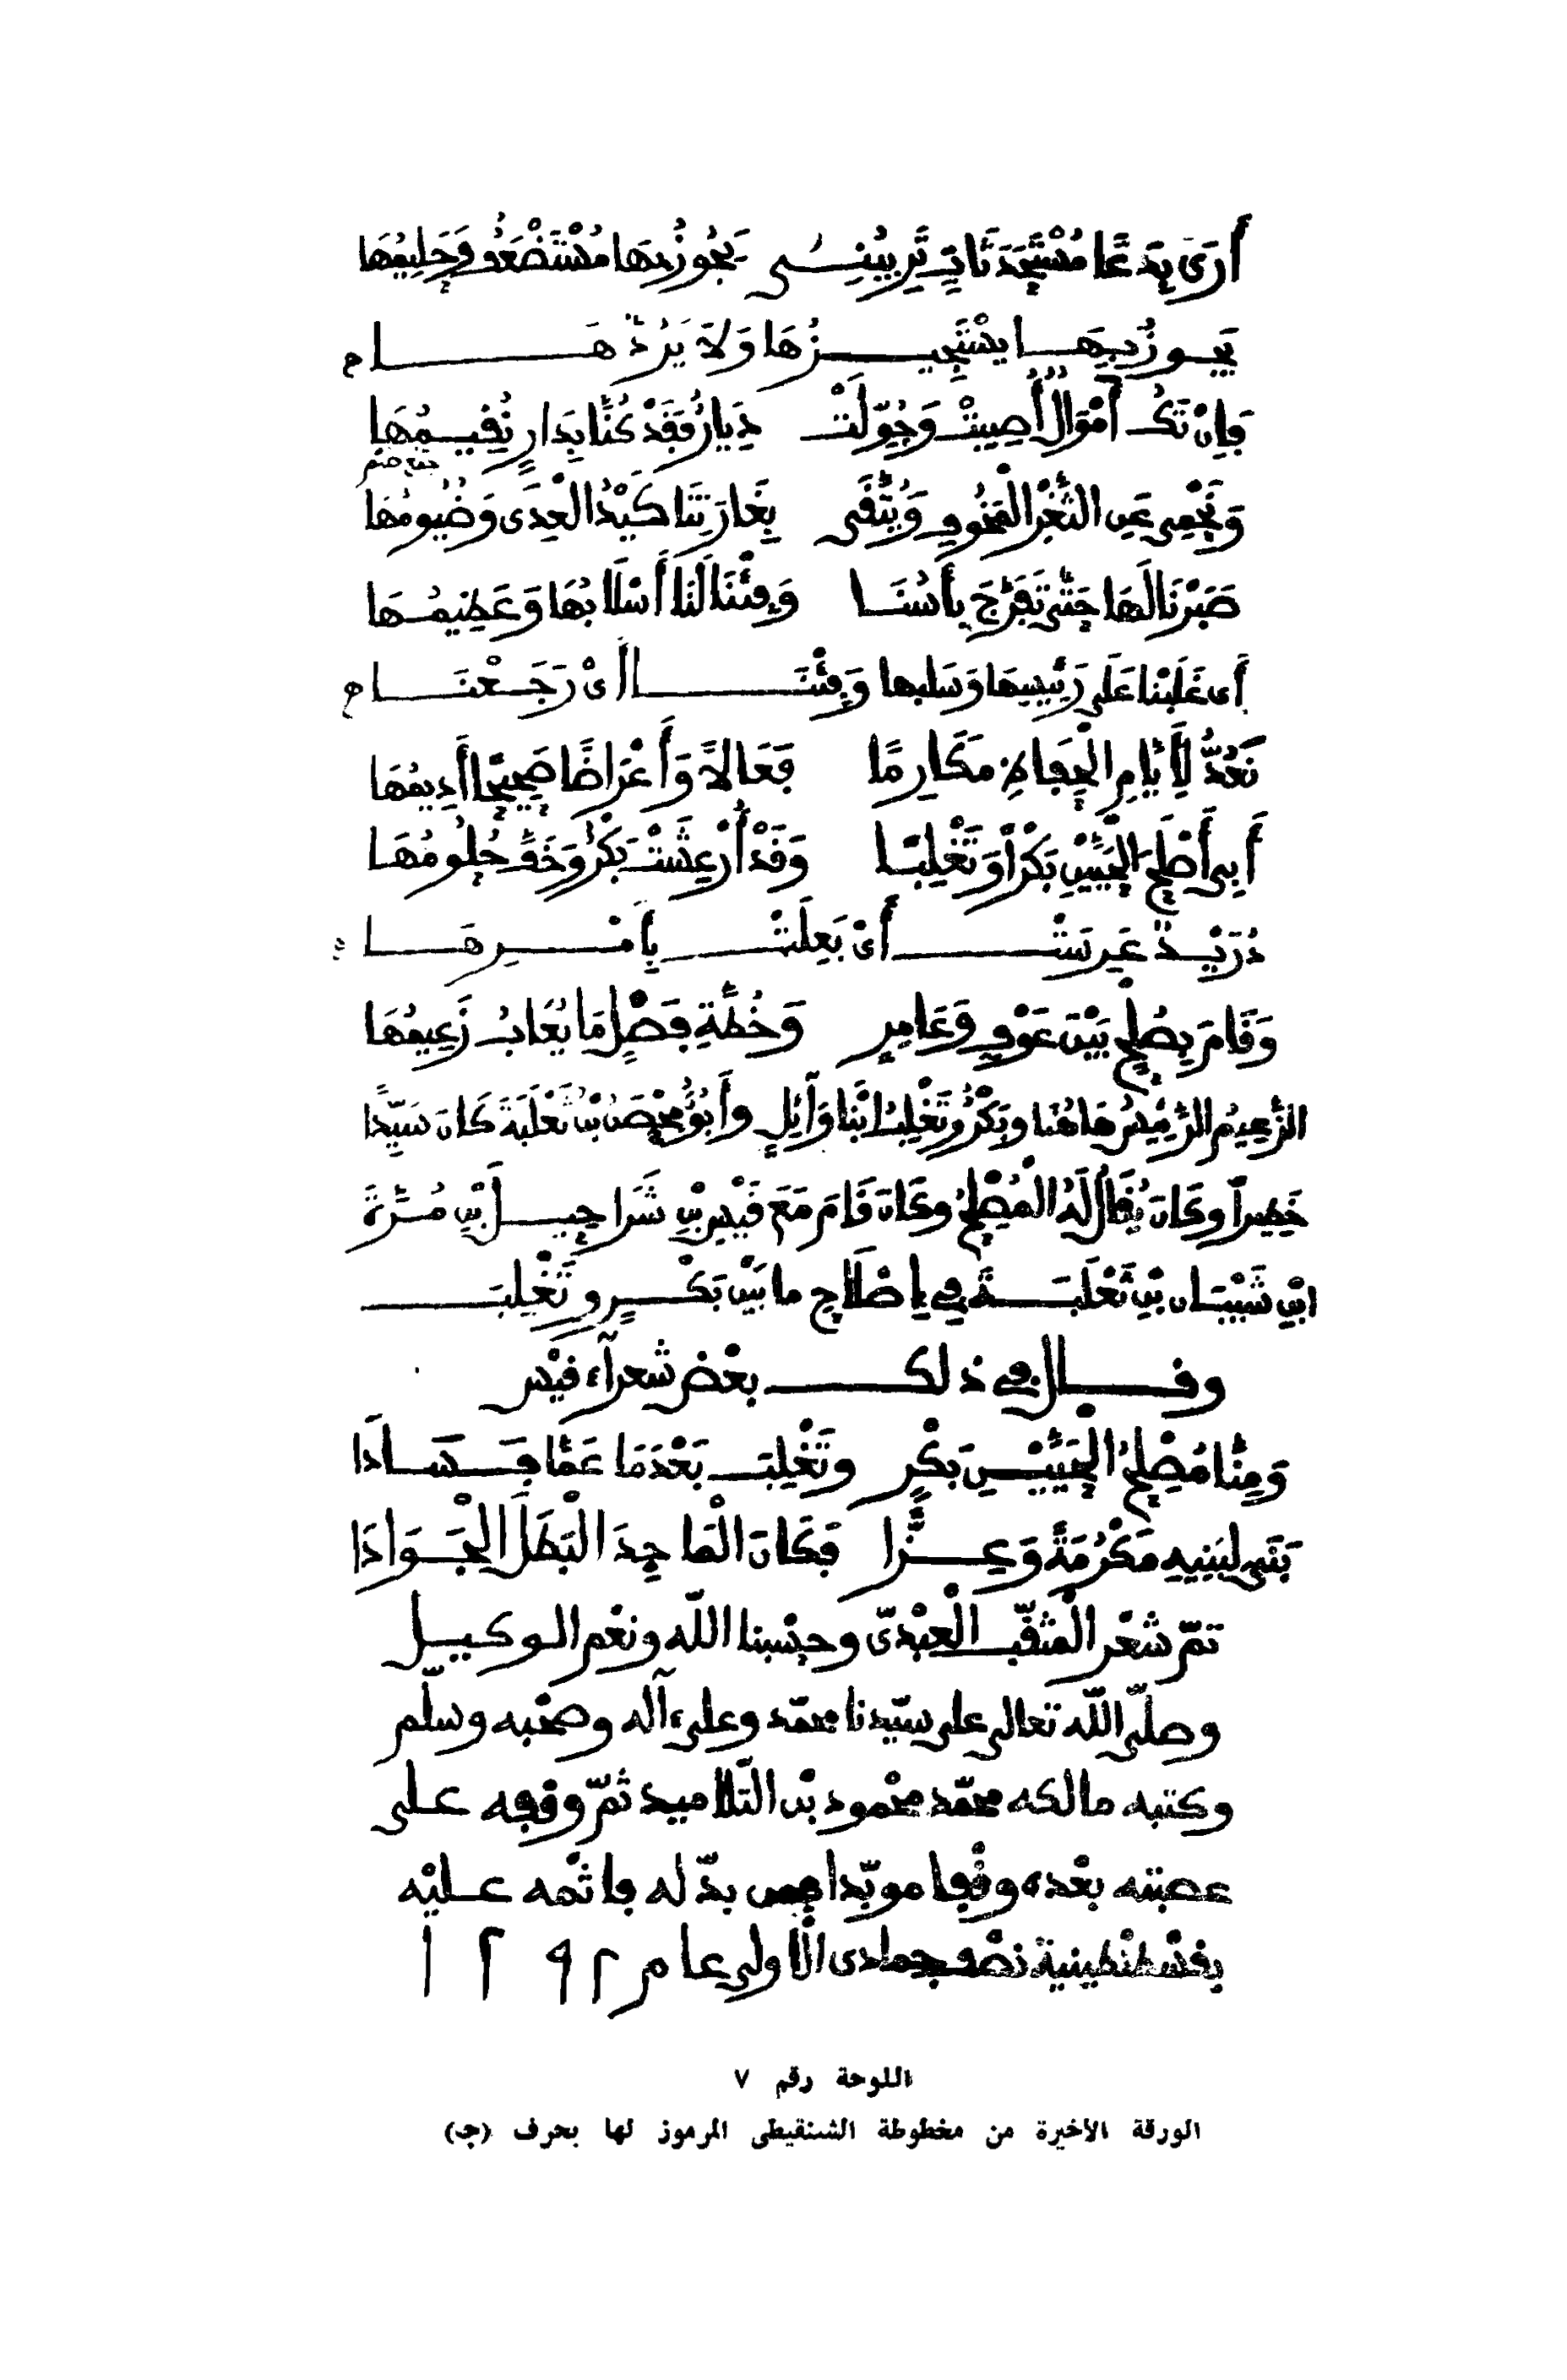 أَرَى بِدَعًا مُسْتَحْدَثَاتٍ تَرِيبُنِي يَجُوزُ بِهَا مُسْتَضْعَفٌ وَحَلِيمُهَا
يجوزُ بِهَا يسْتَجِيزُهَا وَلَا يَرُدُّهَا م
فَإِنْ تَكُ أَمْوَالٌ أُصِيبَتْ وَحُوِّلَتْ دِيَارٌ فَقَدْ كُنَّا بِدَارٍ نُقِيمُهَا
جمع ضيم
وَنَحْمِي عَنِ الثَّغْرِ الْمَخُوفِ وَيُتَّقَى بِغَارَتِنَا كَيْدُ الْعِدَى وَضُيُومُهَا
صَبَرْنَا لَهَا حَتَّى تَفَرَّجَ بِأْسُنَا وَفِئْنَا لَنَا أَسْلَابُهَا وَعَظِيمُهَا
أَى غَلَبْنا عَلَى رَئِيسِهَا وَسَلبها وَفِئْنَا أَىْ رَجَعْنَا م
نَعُدُّ لِأَيَّامِ الْحِفَاظِ مَكَارِمًا فَعَالاً وَأَعْرَاضًا صَحِيحًا أَدِيمُهَا
أَبِي أَصْلَحَ الْحَيَّيْنِ بَكْرًا وَتَغْلِبًا وَقَدْ أُرْعِشَتْ بَكْرٌ وَخَفَّ حُلُومُهَا
أَىْ بَعِلَتْ بِأَمْرِهَا
وَقَامَ بِصُلْحٍ بَيْنَ عَوْفٍ وَعَامِرٍ وَخُطَّةِ فَصْلٍ مَا يُعَابُ زَعِيمُهَا
الزَّعِيمُ الرَّئِيسُ هَاهُنا وبَكْرٌ وتَغْلِبُ ابْنَا وَآئِلٍ وأَبُو مِحْصَنُ بْنُ ثَعْلَبَةَ كَانَ سَيِّدًا
خَطِيراً وكَانَ يُقَالُ لَهُ الْمُصْلِحُ وكَانَ قَامَ مَعَ قَيْسِ بْنِ شَرَاحِيلَ بْنِ مُرَّةَ
ابْنِ شَيْبَانَ بْنِ ثَعْلَبَةَ فِي إِصْلَاحِ ما بَيْنَ بَكْرٍ وتَغْلِبَ
وقال في ذلك بعْض شعرآء قيْس
وَمِنَّا مُصْلِحُ الْحَيَّيْنِ بَكْرٍ وتَغْلِبَ بَعْدَمَا عَمَّا فَسَادَا
بَنَى لِبَنِيهِ مَكْرُمَةً وَعِزًّا فَكَانَ الْمَاجِدَ الْبَطَلَ الْجَوَادَا
تمّ شعْر الْمثقّب الْعبْدىّ وحسْبنا اللّه ونعْم الوكيل
وصلّى اللّه تعالى على سيّدنا محمّد وعلى آله وصحْبه وسلّم
وكتبه مالكه محمّد محْمود بْن التّلاميد ثمّ وقفه على
عصبته بعْده وقْفا موبّدا فمن بدّله فاثمه عليْه
بقسْطنْطينية نصْف جمادى الْأولى عام ١٢٩٢
اللوحة رقم ٧
الورقة الأخيرة من مخطوطة الشنقيطى المرموز لها بحرف (جـ)